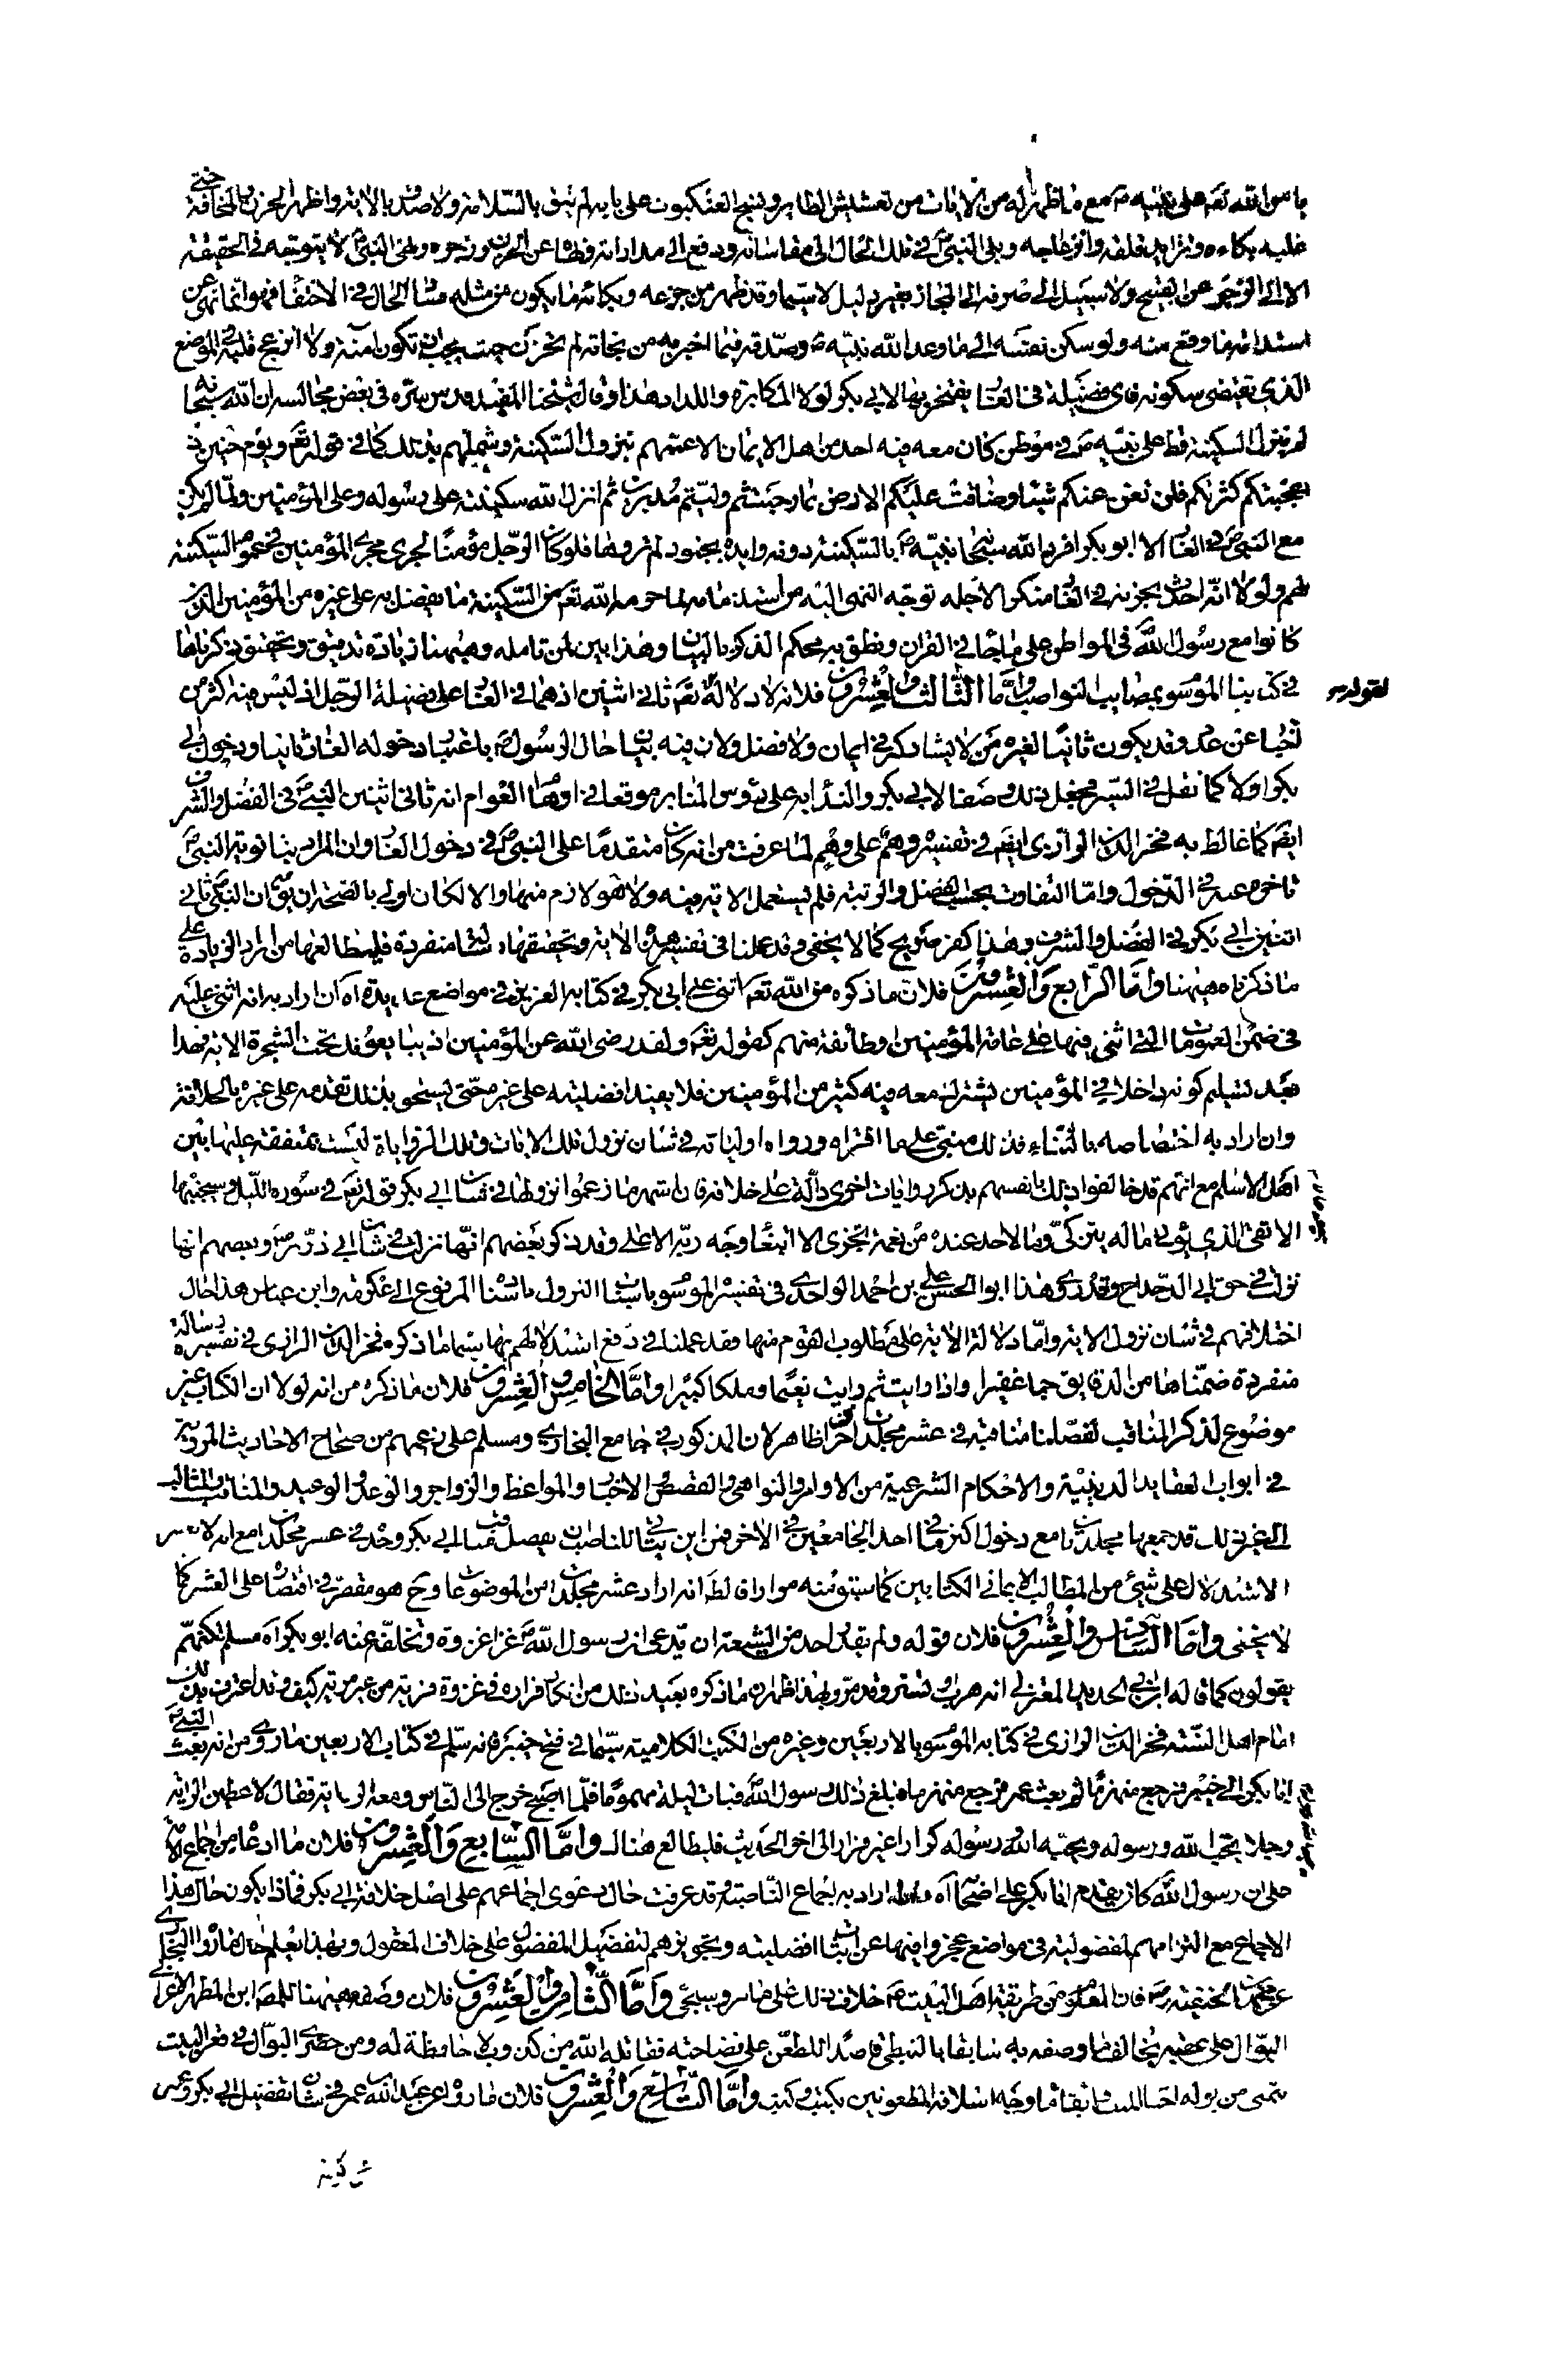 بامر الله تعم على نبيه ص مع ما ظهر له من الايات من تعشيش الطاير ونسج العنكبوت على بابه لم يثق بالسلامة ولا صدق بالاية واظهر الحزن والمخافة حتى
غلبه بكاءه وتزايد قلقه وانزعاجه وبلى النبى ص فى تلك الحال الى مقاساته ودفع الى مداراته عن الحزن وزجره ونهى النبى ص لا يتوجه فى الحقيقة
الا الى الزجر عن القبيح ولا سبيل الى صرفه الى المجاز بغير دليل لا سيما وقد ظهر من جزعه وبكائه ما يكون من مثله فساد الحال فى الاختفا فهو انما نهى عن
استدامة ما وقع منه ولو سكن نفسه الى ما وعد الله نبيه ص وصدقه فيما اخبر به من نجاته لم يحزن حيث يجب ان تكون امنة ولا انزعج قلبه فى الموضع
الذى يقتضى سكونه فاى فضيلة فى الغار يفتخر بها لابى بكر لولا المكابرة واللداد هذا وقال شيخنا المفيد قدس سره فى بعض مجالسه ان الله سبحانه
لم ينزل السكينة قط على نبيه ص فى موطن كان معه فيه احد من اهل الايمان الا عمهم بنزول السكينة وشملهم بذلك كما فى قوله تعم ويوم حنين اذ
اعجبتكم كثرتكم فلن تغن عنكم شيئا وضاقت عليكم الارض بما رحبت ثم وليتم مدبرين ثم انزل الله سكينته على رسوله وعلى المؤمنين ولما لم يكن
مع النبى ص فى الغار الا ابو بكر افرد الله سبحانه نبيه ص بالسكينة دونه وايده بجنود لم تروها فلو كان الرجل مؤمنا لجرى مجرى المؤمنين فى عموم السكينة
لهم ولولا انه احدث بحزنه فى الغار منكرا لاجله توجه النهى اليه من استدامته لما حرمه الله تعم من السكينة ما تفضل به على غيره من المؤمنين الذين
كانوا مع رسول الله ص فى المواطن على ما جاء فى القران ونطق به محكم الذكر بالبيان وهذا بين لمن تامله وههنا زيادة تدقيق وتحقيق ذكرناها
فى كتابنا الموسوم بمصايب النواصب واما الثالث والعشرون فلانه لا دلالة تعم ثانى اثنين اذ هما فى الغار على فضيلة الرجل اذ ليس فيه اكثر من
لقوله
اخبار عن عدد وقد يكون ثانيا لغيره من لا يشاركه فى ايمان ولا فضل ولان فيه بيان حال الرسول ص باعتبار دخوله الغار ثانيا ودخول ابى
بكر اولا كما نقل فى السير فجعل ذلك وصفا لابى بكر والندا به على رؤس المنابر موقعا فى اوهام العوام انه ثانى اثنين النبى ص فى الفضل والشرف
ايضا كما غالط به فخر الدين الرازى ايضا فى تفسيره وهم على وهم لما عرفت من انه كان متقدما على النبى ص فى دخول الغار وان المراد بثانوية النبى ص
تاخره عنه فى الدخول واما التفاوت بحسب الفضل والرتبة فلم يستعمل الاية فيه ولا هو لازم منها والا لكان اولى بالصحة ان يق ان النبى ص ثانى
اثنين ابى بكر فى الفضل والشرف وهذا كفر صريح كما لا يخفى وقد عملنا فى تفسير هذه الاية وتحقيقها رسالة منفردة فليطالعها من اراد الزيادة على
ما ذكرناه ههنا واما الرابع والعشرون فلان ما ذكره من الله تعم اثنى على ابى بكر فى كتابه العزيز فى مواضع عديدة اه ان اراد به انه اثنى عليه
فى ضمن العمومات التى اثنى فيها على عامة المؤمنين او طائفة منهم كقوله تعم ولقد رضى الله عن المؤمنين اذ يبايعونك تحت الشجرة الاية فهذا
بعد تسليم كونه داخلا فى المؤمنين يشترك معه فيه كثير من المؤمنين فلا يفيد افضليته على غيره حتى يستحق بذلك تقدمه على غيره بالخلافة
وان اراد به اختصاصه بالثناء فذلك مبنى على ما افتراه ورواه اولياؤه فى شان نزول تلك الايات وتلك الروايات ليست بمتفقة عليها بين
اهل الاسلام مع انهم قد خالفوا ذلك بانفسهم بذكر روايات اخرى دالة على خلافه فان اشهر ما زعموا نزولها فى شان ابى بكر قوله تعم فى سوره الليل وسيجنبها
الاتقى الذى يؤتى ماله يتزكى وما لاحد عنده من نعمة تجزى الا ابتغاء وجه ربه الاعلى وقد ذكر بعضهم انها نزلت فى شان ابى ذر رض وبعضهم انها
نزلت فى حق ابى الدحداح وقد روى هذا ابو الحسن على بن احمد الواحدى فى تفسيره الموسوم باسباب النزول باسناده المرفوع الى عكرمة وابن عباس هذا حال
اختلافهم فى شان نزول الاية واما دلالة الاية على مطلوب القوم منها فقد عملنا فى دفع استدلالهم بها سيما ما ذكره فخر الدين الرازى فى تفسيره رسالة
منفردة ضمناها من الدقايق جما غفيرا واذا رايت ثم رايت نعيما وملكا كبيرا واما الخامس والعشرون فلان ما ذكره من انه لولا ان الكتاب غير
موضوع لذكر المناقب لفصلنا مناقبه فى عشر مجلدات اخر ظاهر لان المذكور فى جامع البخارى ومسلم على زعمهم من صحاح الاحاديث المروية
فى ابواب العقايد الدينية والاحكام الشرعية من الاوامر والنواهى والقصص والاخبار والمواعظ والزواجر والوعد والوعيد والمناقب والمثالب
الى غير ذلك قد جمعها مجلدان مع دخول اكثر ما فى احد الجامعين فى الاخر فمن اين يتاتى للناصب تفصيل مناقب ابى بكر وحده فى عشر مجلدات مع انه
الاستدلال على شئ من المطالب الايمانى الكتابين كما ستوفيه مرارا فالظ انه اراد عشر مجلدات من الموضوعات وح هو مقصر فى اقتصاره على العشر كما
لا يخفى واما السادس والعشرون فلان قوله ولم يقل احد من الشيعة ان يدعى ان رسول الله ص غزا غزوة وتخلف عنه ابو بكر اه مسلم لكنهم
يقولون كما قاله ابن ابى الحديد المعتزلى انه هرب وتستر وقد مر وبهذا ظهر ان ما ذكره بعيد ذلك من انكار فراره فى غزوة فرية من غير مرية كيف وقد اعترف بذلك
امام اهل السنة فخر الدين الرازى فى كتابه الموسوم بالاربعين وغيره من الكتب الكلامية سيما فى فتح خيبر فانه سلم فى كتاب الاربعين ما روى من انه بعث النبى ص
ابا بكر الى خيبر فرجع منهزما ثم بعث عمر فرجع منهزما فبلغ ذلك رسول الله ص فبات ليلة مهموما فلما اصبح خرج الى الناس ومعه الراية فقال لاعطين الراية
رجلا يحب الله ورسوله ويحبه الله ورسوله كرارا غير فرار الى اخر الحديث فليطالع هناك واما السابع والعشرون فلان ما ادعاه من اجماع الامة
على ان رسول الله ص كان يقدم ابا بكر على اصحابه اه ان اراد به اجماع الناصبة فقد عرفت حال دعوى اجماعهم على اصل خلافة ابى بكر فماذا يكون حال هذا
الاجماع مع التزامهم لمفضوليته فى مواضع عجزوا فيها عن اثبات افضليته وتجويزهم لتفضيل المفضول على خلاف المعقول وبهذا يعلم حال ما رواه البخارى
عن محمد بن الحنفية رض فان المعلوم من طريقة اهل البيت ع م خلاف ذلك على ما مر وسيجئ واما الثامن والعشرون فلان وصفه ههنا للمص ابن المطهر بالاعرابى
البوال على عقبيه يخالف ما وصفه به سابقا بالنبطى قاصدا للطعن على فصاحته فقاتله الله من كذوب لا حافظة له ومن حضرى البوال فى قعر البيت
واما التاسع والعشرون فلان ما رواه عن عبد الله بن عمر فى شان تفضيل ابى بكر وعمر